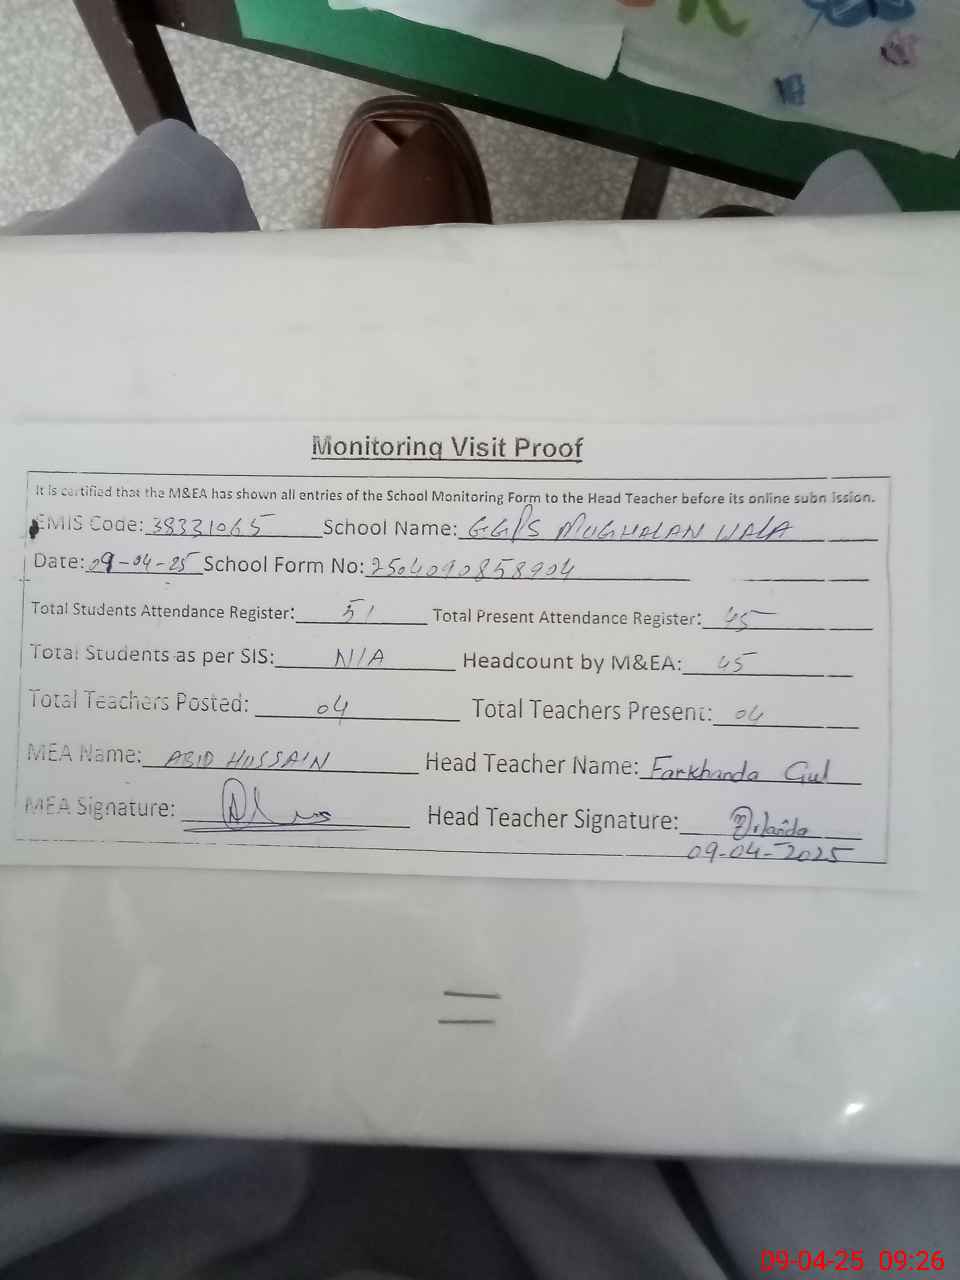 Monitoring Visit Proof
It is certified that the M&EA has shown all entries of the School Monitoring Form to the Head Teacher before its online subn ission.
EMIS Code: 38321065 School Name: GGPS MUGHALAN WALA
Date: 09-04-25 School Form No: 2504090858904
Total Students Attendance Register: 51 Total Present Attendance Register: 45
Total Students as per SIS: N/A Headcount by M&EA: 45
Total Teachers Posted: 04 Total Teachers Present: 04
MEA Name: ABID HUSSAIN Head Teacher Name: Farkhanda Gul
MEA Signature: Head Teacher Signature:
09-04-2025
09-04-25 09:26